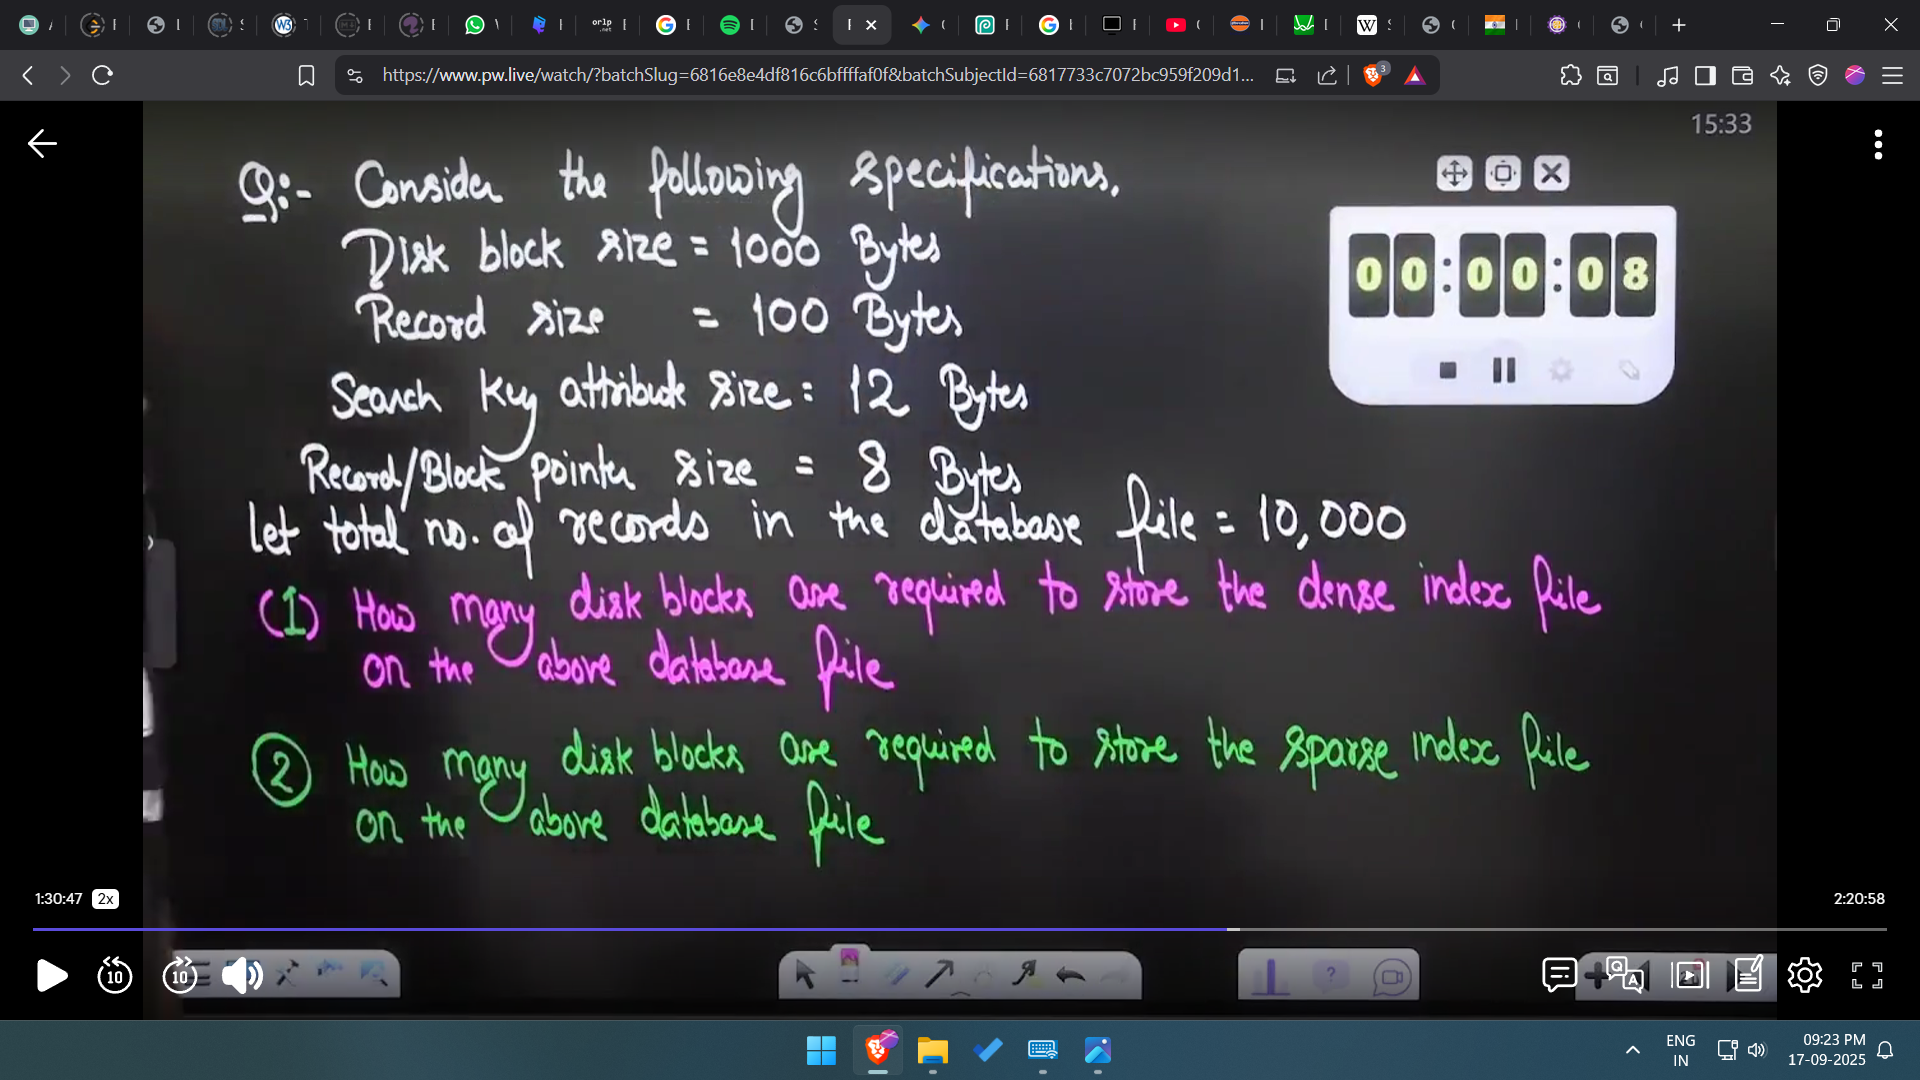 https://www.pw.live/watch/?batchSlug=6816e8e4df816c6bffffaf0f&batchSubjectId=6817733c7072bc959f209d1...
3
15:33
Q:- Consider the following specifications.
Disk block size = 1000 Bytes
Record size = 100 Bytes
Search key attribute size = 12 Bytes
Record/Block pointer size = 8 Bytes
let total no. of records in the database file = 10,000
(1) How many disk blocks are required to store the dense index file
on the above database file
(2) How many disk blocks are required to store the sparse index file
on the above database file
00:00:08
1:30:47 2x
2:20:58
10
10
ENG
IN
09:23 PM
17-09-2025